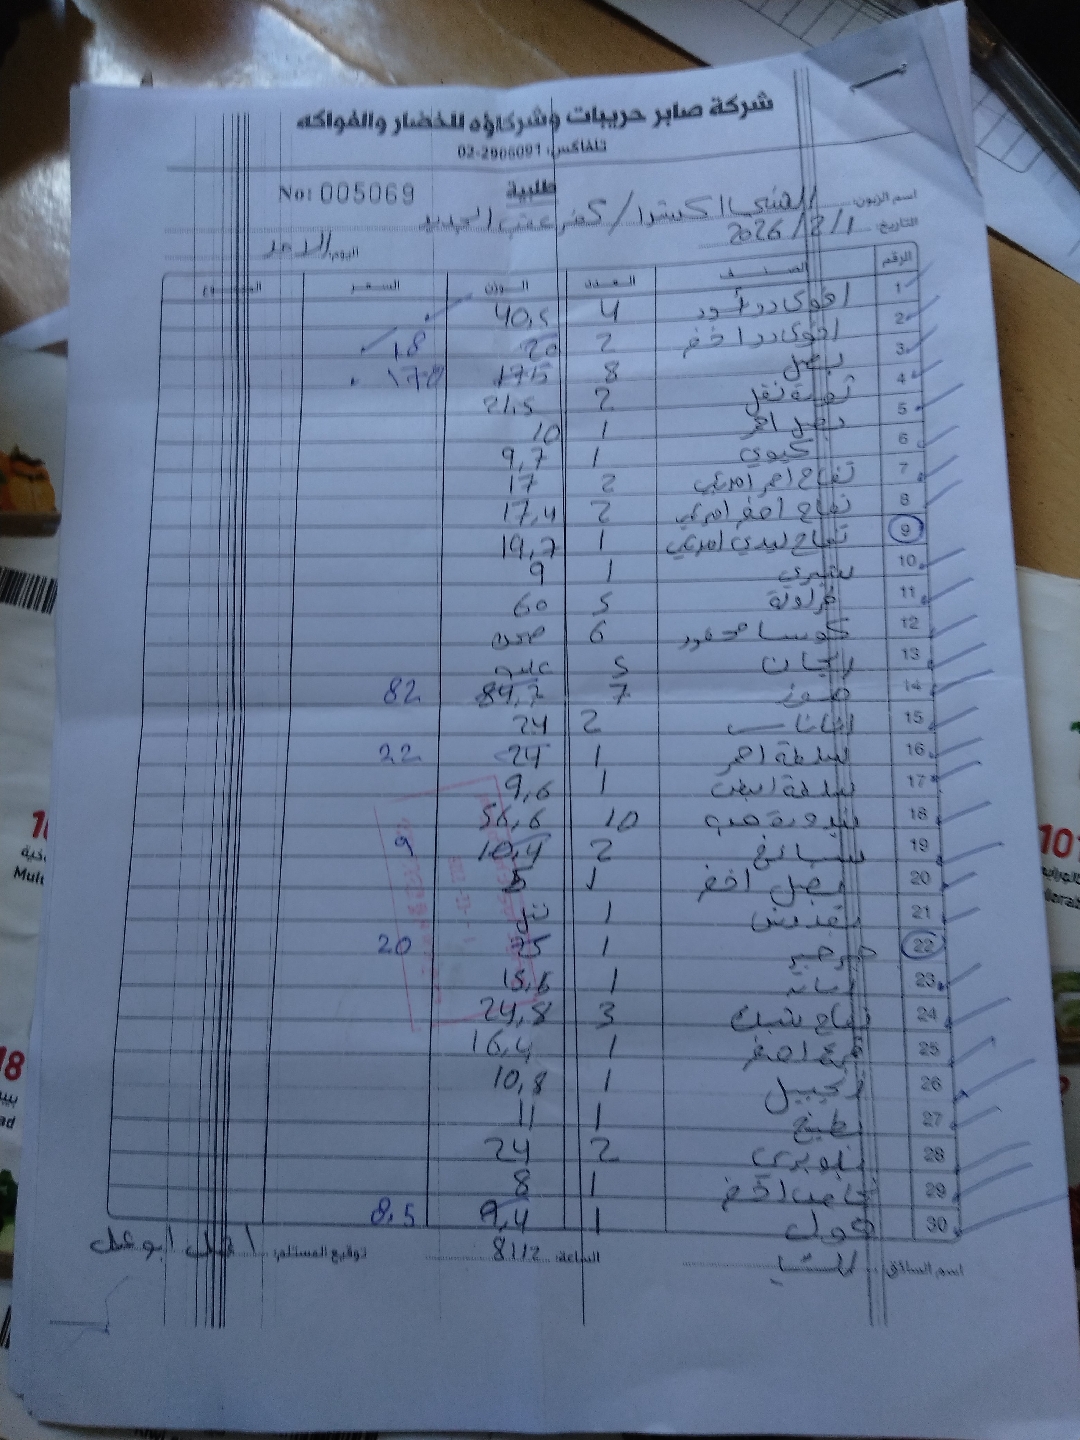 شركة صابر حريبات وشركاؤه للخضار والفواكه
تلفاكس: 02-2906091
طلبية
No: 005069
اسم الزبون: الهنيني اكسترا / كفر عقب الجديد
التاريخ: 2026/2/1 اليوم: الاحد
الرقم الصنف العدد الوزن السعر المجموع
1 افوكادو أسود 4 40,5
2 افوكادو اخضر 2 20 18
3 بصل 8 175 172
4 2 21,5
5 بصل احمر 1 10
6 كيوي 1 9,7
7 تفاح احمر امريكي 2 17
8 تفاح اصفر امريكي 2 17,4
9 تفاح ليدي امريكي 1 19,7
10 شيري 1 9
11 فراولة 5 60
12 كوسا محفور 6 صحن
13 ريحان 5 علبه
14 موز 7 84,2 82
15 اناناس 2 24
16 سلطة احمر 1 24 22
17 سلطة ابيض 1 9,6
18 بندورة 10 56,6
19 سبانخ 2 10,4 9
20 بصل اخضر 1 5
21 بقدونس 1
22 جرجير 1 25 20
23 1 15,6
24 تفاح 3 24,8
25 قرع اصفر 1 16,4
26 زنجبيل 1 10,8
27 بطيخ 1 11
28 بلوبري 2 24
29 اخضر 1 8
30 فول 1 9,4 8.5
اسم السائق: الساعة: 8:12 توقيع المستلم: